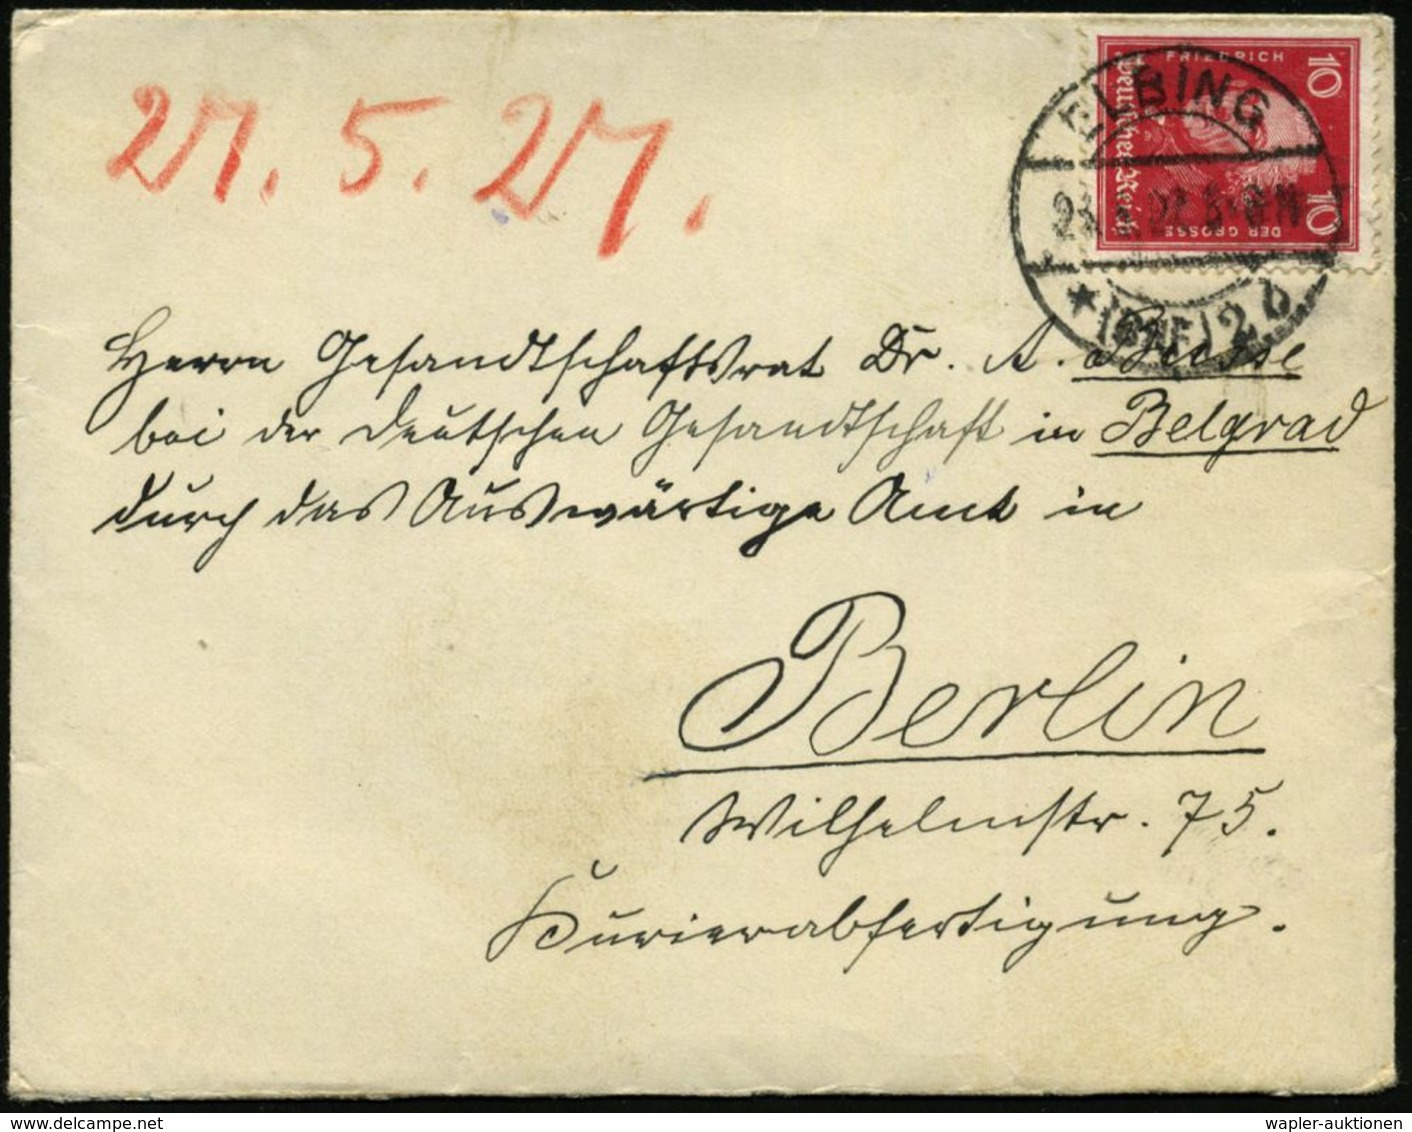 27. 5. 27.
FRIEDRICH
10
Deutsches Reich
10
DER GROSSE
ELBING
27 5-6 N
* (BHF.) 2 b
Herrn Gesandtschaftsrat Dr. A. Busse
bei der Deutschen Gesandtschaft in Belgrad
durch das Auswärtige Amt in
Berlin
Wilhelmstr. 75.
Kurierabfertigung.
wapler-auktionen